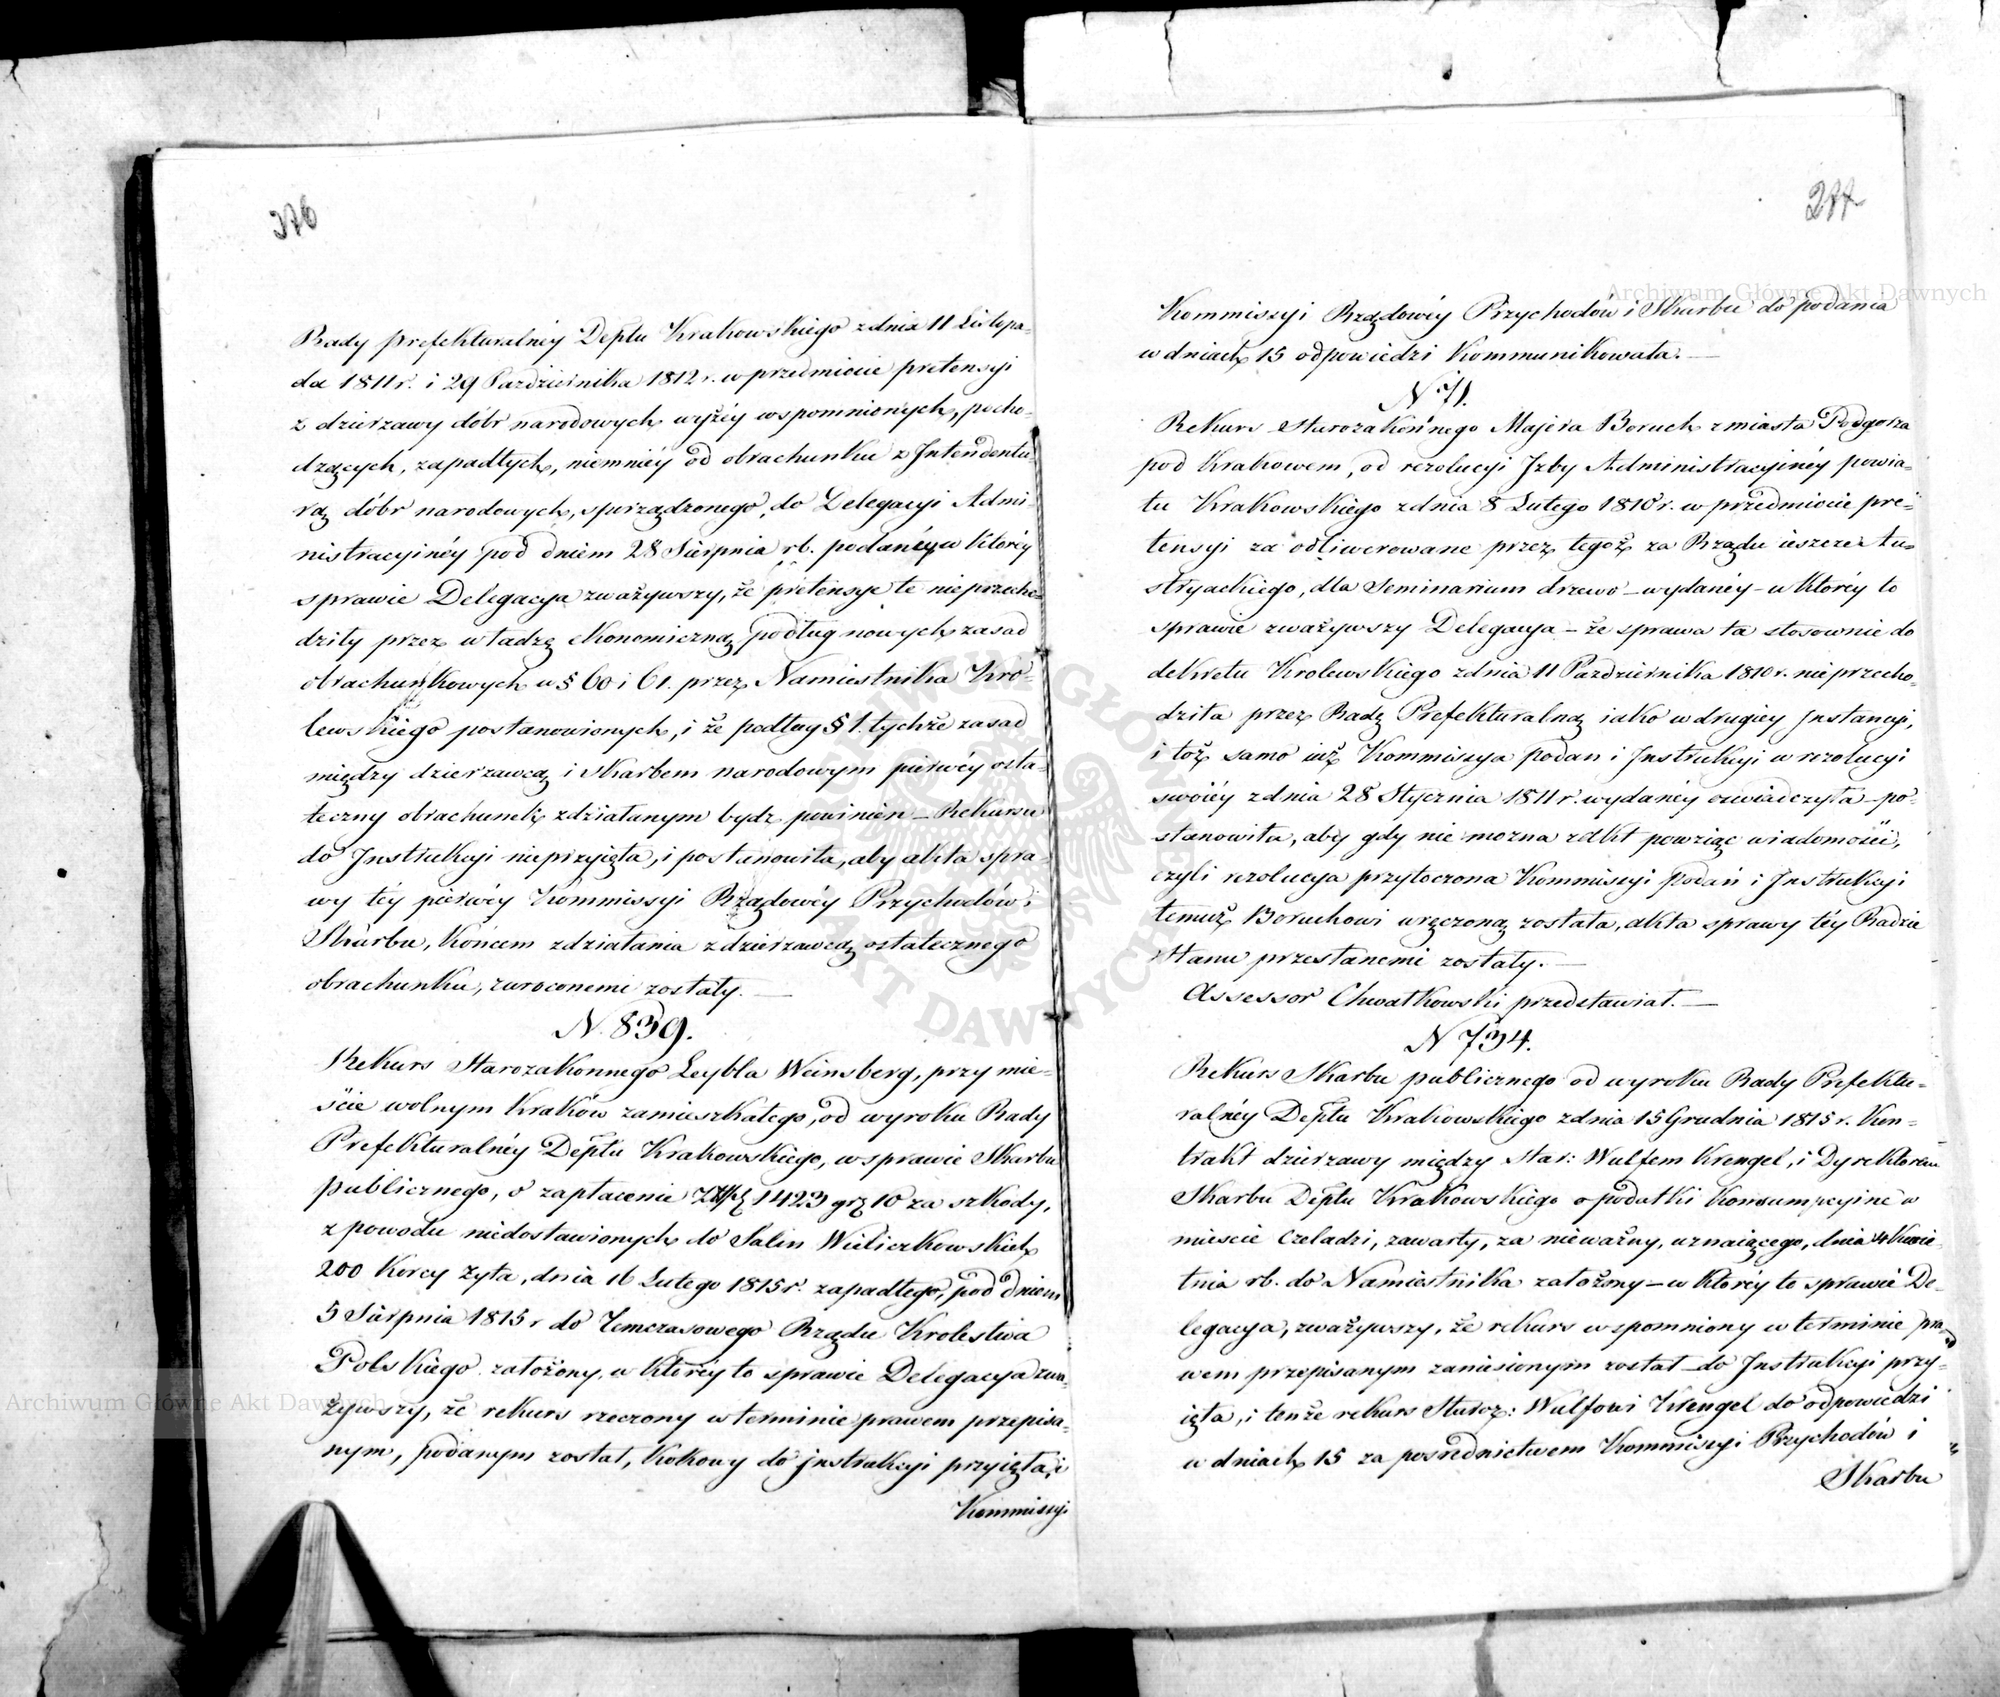 376
Rady Prefekturalnéy Deptu Krakowskiego z dnia 11 Listopa-
da 1811 r. i 29 Pazdziernika 1812 r. w przedmiocie pretensyi
z dzierzawy dóbr narodowych wyżéy wspomnionych, pocho-
dzących, zapadłych, niemniéy od obrachunku z Intendentu-
rą dóbr narodowych, sporządzonego, do Delegacyi Admi-
nistracyinéy pod dniem 28 Sierpnia rb. podanéy w któréy
sprawie Delegacya zważywszy, że pretensye te nie przecho-
dziły przez władzę ekonomiczną podług nowych zasad
obrachunkowych w § 60 i 61. przez Namiestnika Kró-
lewskiego postanowionych, i że podług § 1. tychże zasad
między dzierzawcą i skarbem narodowym pierwéy osta-
teczny obrachunek zdziałanym bydz powinien – Rekursu
do Instrukcyi nie przyięła, i postanowiła, aby akta spra-
wy téy pierwéy Kommissyi Rządowéy Przychodów i
Skarbu, końcem zdziałania z dzierzawcą ostatecznego
obrachunku, zwroconemi zostały. —
N. 839.
Rekurs Starozakonnego Leybla Weinsberg, przy mie-
ście wolnym Kraków zamieszkałego, od wyroku Rady
Prefekturalnéy Deptu Krakowskiego, w sprawie Skarbu
publicznego, o zapłacenie Złłp 1423 gr 10 za szkody,
z powodu niedostawionych do Salin Wieliczkowskich
200 Korcy żyta, dnia 16 Lutego 1815 r. zapadłego, pod dniem
5 Sierpnia 1815 r do Temczasowego Rządu Krolestwa
Polskiego założony, w któréy to sprawie Delegacya zwa-
żywszy, że rekurs rzeczony w terminie prawem przepisa-
nym, podanym został, takowy do instrukcyi przyięła, i
Kommissyi
277
Kommissyi Rządowéy Przychodów i Skarbu do podania
w dniach 15 odpowiedzi kommunikowała. —
N. 71.
Rekurs starozakonnego Majera Boruch z miasta Podgorza
pod Krakowem, od rezolucyi Izby Administracyinéy powia-
tu Krakowskiego z dnia 8 Lutego 1810 r. w przedmiocie pre-
tensyi za odliwerowane przez tegoż za Rządu ieszcze Au-
stryackiego, dla Seminarium drzewo – wydanéy – w któréy to
sprawie zważywszy Delegacya – że sprawa ta stosownie do
dekretu Krolewskiego z dnia 11 Pazdziernika 1810 r. nie przecho-
dziła przez Radę Prefekturalną iako w drugiéy Instancyi,
i toż samo iuż Kommissya podan i Instrukcyi w rezolucyi
swoiéy z dnia 28 Stycznia 1811 r. wydanéy oswiadczyła – po-
stanowiła, aby gdy nie mozna z akt powziąc wiadomości,
czyli rezolucya przytoczona Kommissyi podań i Instrukcyi
temuż Boruchowi wręczoną została, akta sprawy téy Radzie
Stanu przesłanemi zostały. —
Assessor Chwatkowski przedstawiał. —
N 734.
Rekurs Skarbu publicznego od wyroku Rady Prefektu-
ralnéy Deptu Krakowskiego z dnia 15 Grudnia 1815 r. Kon-
trakt dzierzawy między star: Wulfem Krengel, i Dyrektorem
Skarbu Deptu Krakowskiego o podatki konsumpcyine w
miescie Czeladzi, zawarty, za nieważny, uznaiącego, dnia 4 Kwie-
tnia rb. do Namiestnika założony – w któréy to sprawie De-
legacya, zważywszy, że rekurs wspomniony w terminie pra-
wem przepisanym zaniesionym został – do Instrukcyi przy-
ięła, i tenże rekurs Staroz: Wulfowi Krengel do odpowiedzi
w dniach 15 za posrednictwem Kommissyi Przychodów i
Skarbu
Archiwum Główne Akt Dawnych
Archiwum Główne Akt Dawnych